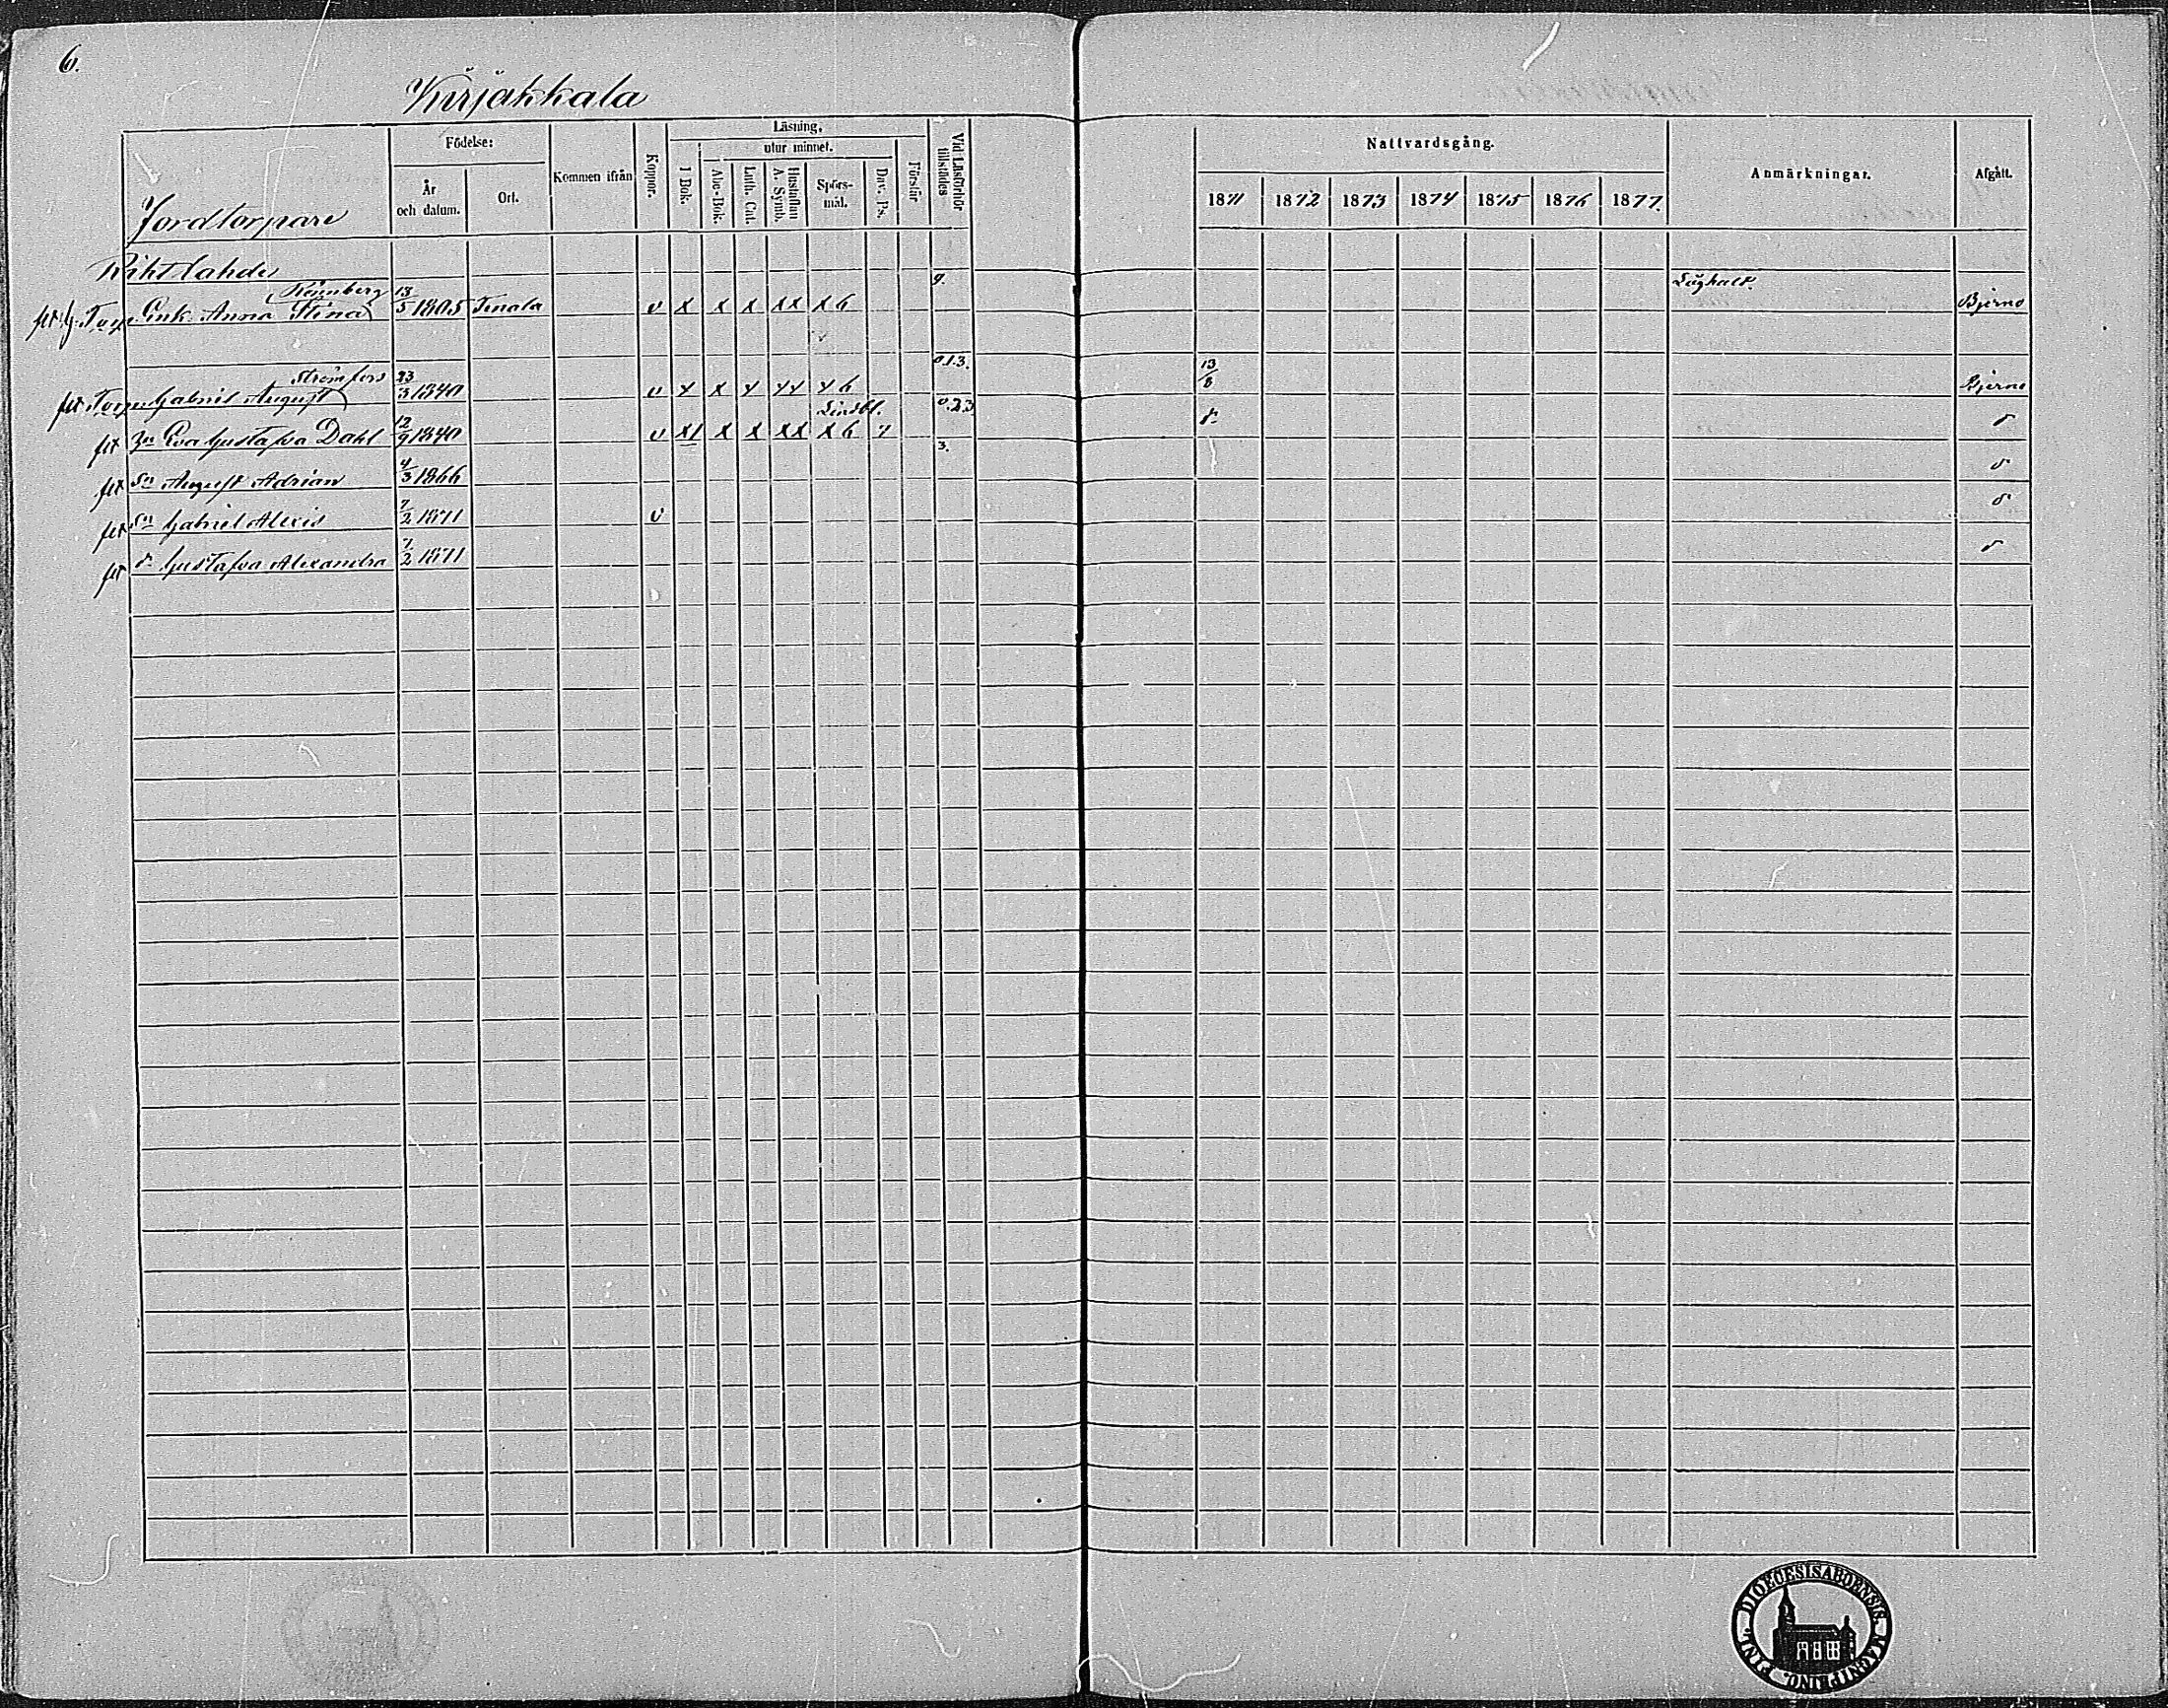 6.
Kirjakkala
Jordtorpare
Födelse:
År och datum.
Ort.
Kommen ifrån
Koppor.
Läsning,
I Bok.
utur minnet.
Abc-Bok.
Luth. Cat.
Hustaflan A. Symb.
Spörs-mål.
Dav. Ps.
Förstår
Vid Läsförhör tillstädes
Nattvardsgång.
1871 1872 1873 1874 1875 1876 1877.
Anmärkningar.
Afgått.
Rihtlahde
Rönnberg
Enk. Anna Stina 13/5 1805 Tenala v x x x xx x 6 9. Bjerno
Strömfors
Gabriel August 23/3 1840 v x x x xx x 6 0.1.3. 13/8 Bjerno
Lindbl.
Eva Gustafva Dahl 12/9 1840 v x1 x x xx x 6 7 0.2.3
Sn August Adrian 4/3 1866 3.
Sn Gabriel Alexis 7/2 1871 v
Gustafva Alexandra 7/2 1871
DIOECESIS ABOENSIS. MAGNI PRINC. FINL.